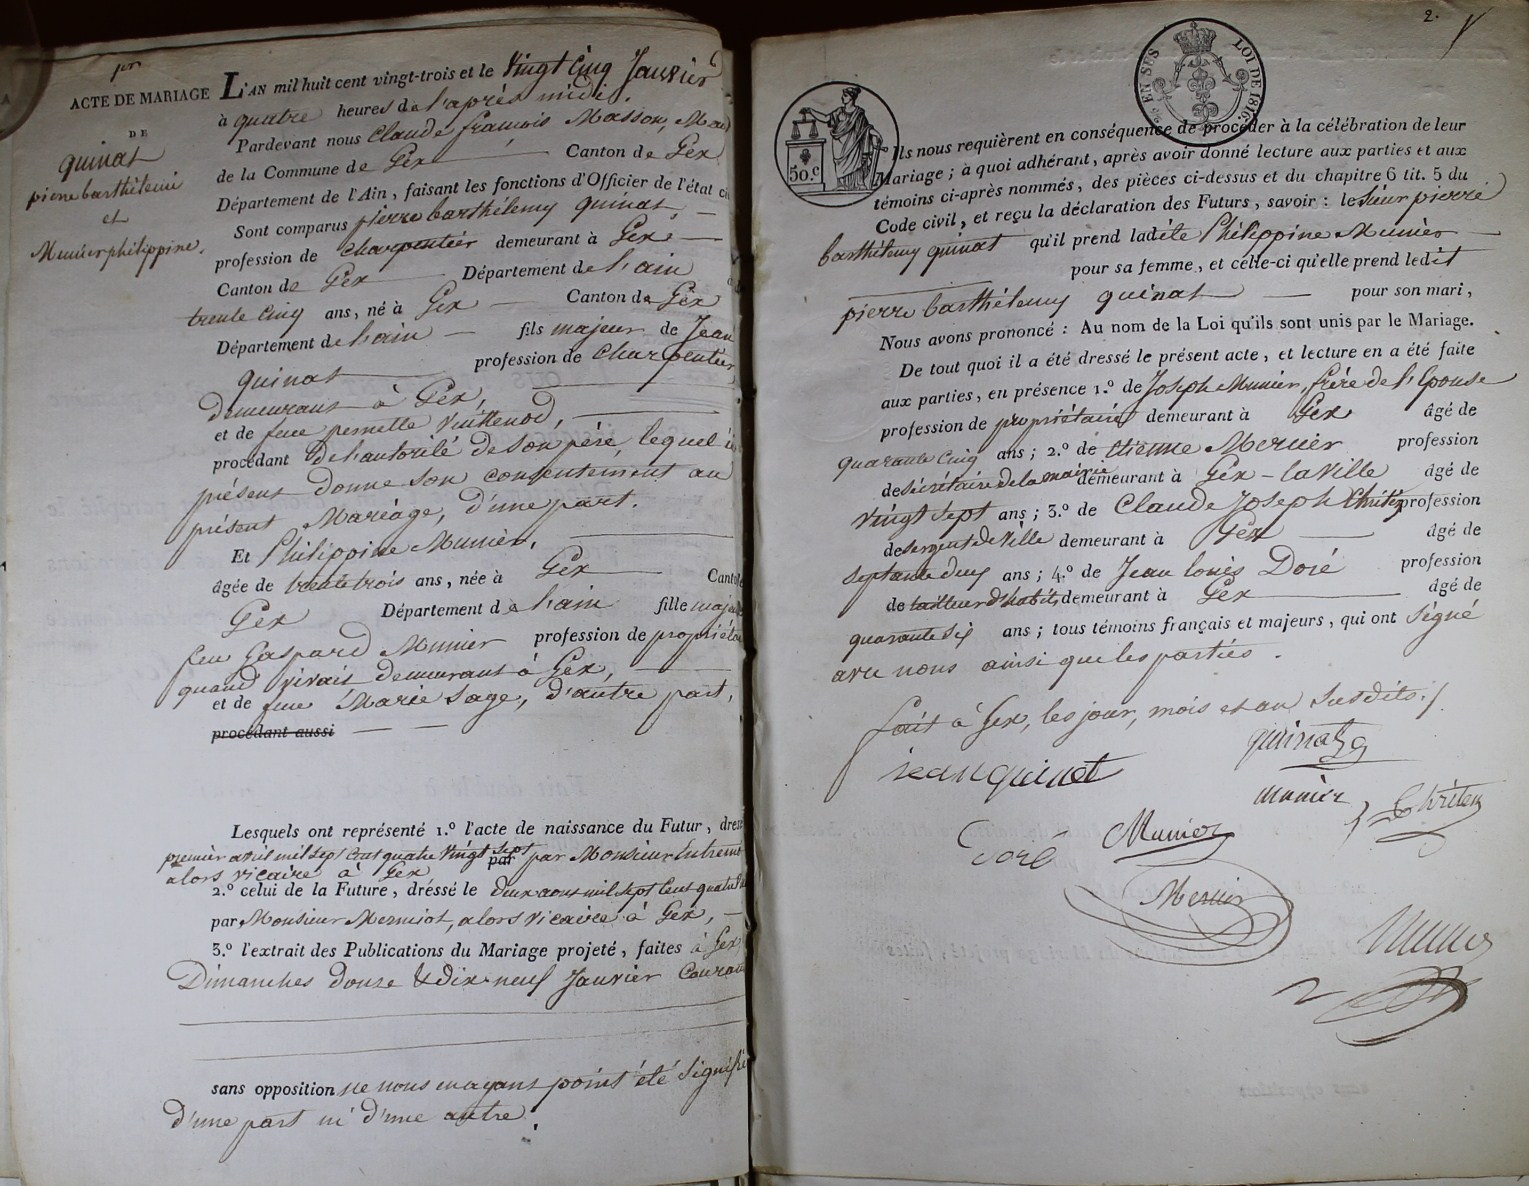 ACTE DE MARIAGE
DE
quinat
pierre barthélemi
et
Munier philippine.
L'AN mil huit cent vingt-trois et le vingt cinq Janvier
à quatre heures de l'après midi,
Pardevant nous Claude françois Masson,
de la Commune de Gex Canton de Gex
Département de l'Ain, faisant les fonctions d'Officier de l'état
Sont comparus pierre barthélemy quinat,
profession de charpentier demeurant à Gex
Canton de Gex Département de l'ain
trente cinq ans, né à Gex Canton de Gex
Département de l'ain fils majeur de Jean
quinat profession de charpentier
demeurant à Gex,
et de feue pernette Vuillenod,
procédant de l'autorité de son père, lequel
présent donne son consentement au
présent Mariage, d'une part.
Et Philippine Munier,
âgée de trente trois ans, née à Gex
Gex Département de l'ain fille
feu Gaspard Munier profession de
quand vivait demeurant à Gex,
et de feue Marie Sage, d'autre part,
procédant aussi
Lesquels ont représenté 1.º l'acte de naissance du Futur,
premier avril mil sept cent quatre vingt sept par par Monsieur
alors vicaire à Gex
2.º celui de la Future, dréssé le deux aout mil sept cent
par Monsieur Mermiot, alors vicaire à Gex,
3.º l'extrait des Publications du Mariage projeté, faites à Gex
Dimanches douze & dix-neuf Janvier Courant
sans opposition ne nous en ayant point été
d'une part ni d'une autre.
2.
EN SES LOI DE 1816
50.c
Ils nous requièrent en conséquence de procéder à la célébration de leur
Mariage; à quoi adhérant, après avoir donné lecture aux parties et aux
témoins ci-après nommés, des pièces ci-dessus et du chapitre 6 tit. 5 du
Code civil, et reçu la déclaration des Futurs, savoir: le sieur pierre
barthélemy quinat qu'il prend ladite Philippine Munier
pour sa femme, et celle-ci qu'elle prend ledit
pierre barthélemy quinat pour son mari,
Nous avons prononcé: Au nom de la Loi qu'ils sont unis par le Mariage.
De tout quoi il a été dressé le présent acte, et lecture en a été faite
aux parties, en présence 1.º de Joseph Munier, frère de l'Epouse
profession de propriétaire demeurant à Gex âgé de
quarante cinq ans; 2.º de Etienne Mercier profession
de sécrétaire de la mairie demeurant à Gex-la Ville âgé de
vingt sept ans; 3.º de Claude Joseph profession
de sergent de Ville demeurant à Gex âgé de
septante deux ans; 4.º de Jean louis Doré profession
de tailleur d'habits demeurant à Gex âgé de
quarante six ans; tous témoins français et majeurs, qui ont signé
avec nous ainsi que les parties.
fait à Gex, les jour, mois et an susdits./
quinat
jean quinat
munier
Munier
Doré